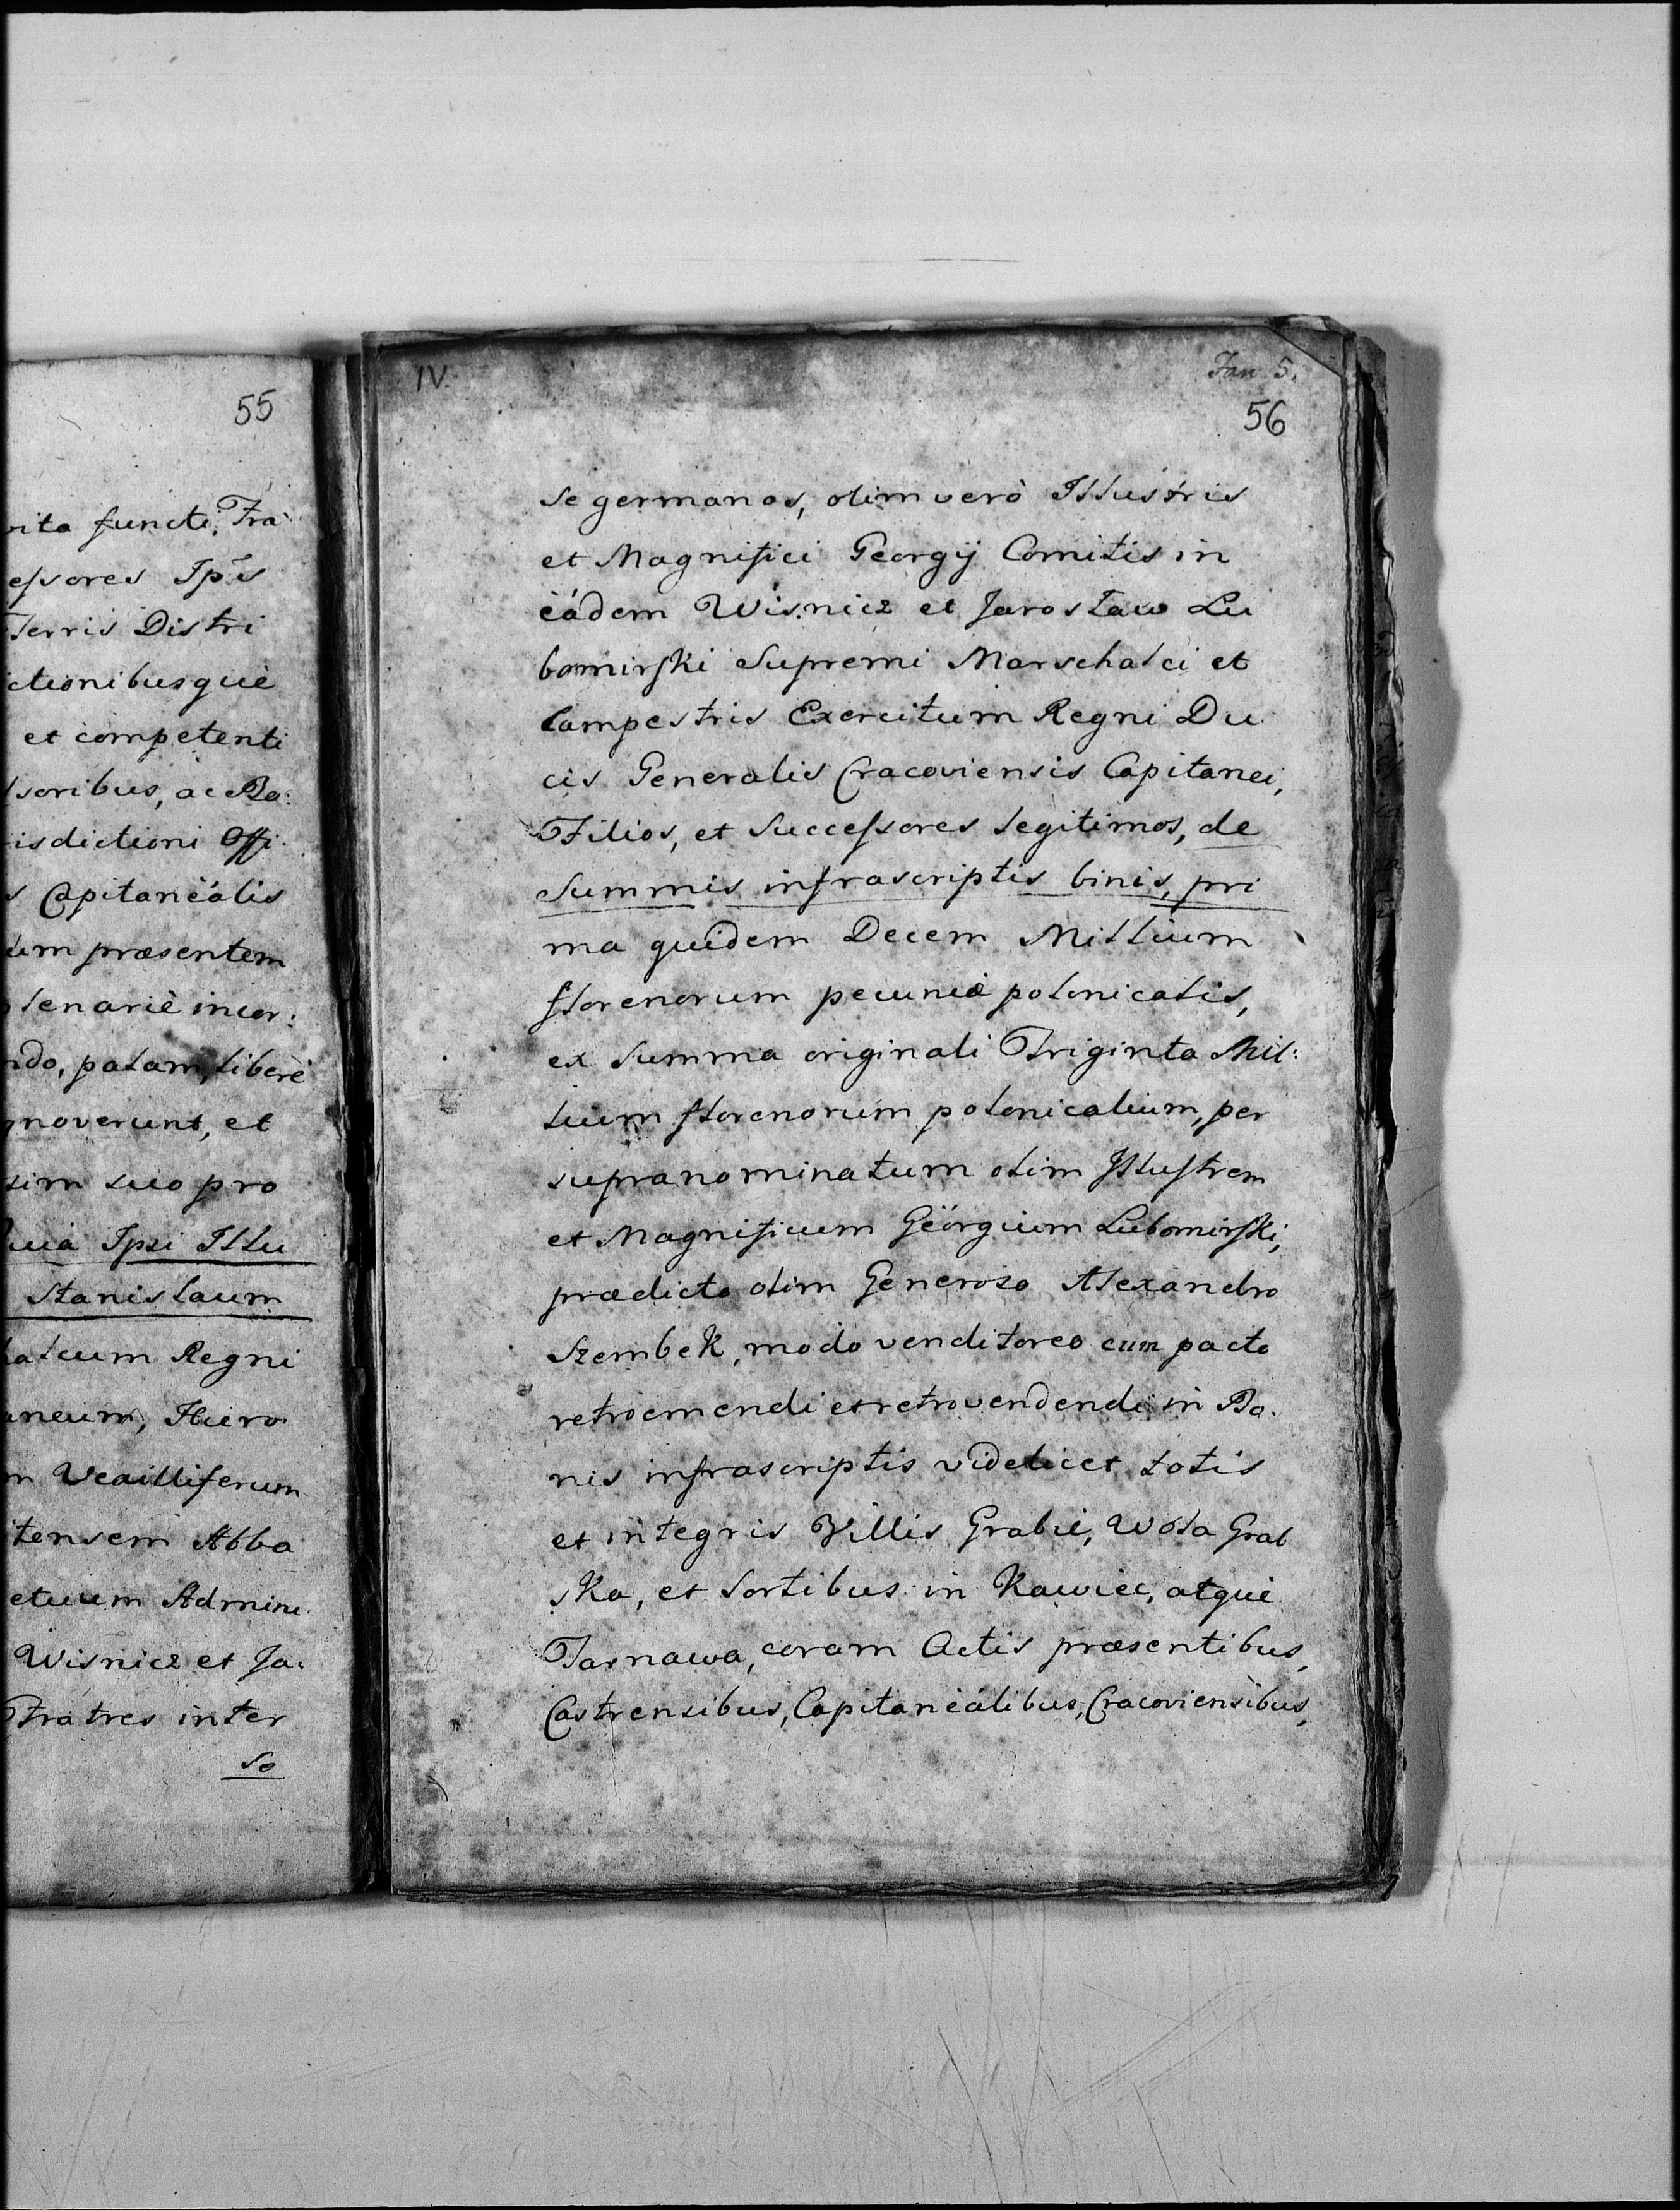 55
vita functi, Fra
essores Ips̄
Terris Distri
ctionibusquè
et competenti
soribus, ac Bo:
isdictioni Offi
s Capitanèális
um præsentem
plenariè incor:
ndo, palam, liberè
gnoverunt, et
sim suo pro
Quia Ipsi Illu
Stanislaum
halcum Regni
aneum, Hiero
m Vexilliferum
tensem Abba
etuum Admini
Wisnicz et Ja:
Fratres inter
se
IV.
Jan 5.
56
se germanos, olim verò Illustris
et Magnifici Georgij Comitis in
èádem Wisnicz et Jarosław Lu
bomirski Supremi Marschalci et
Campestris Exercitum Regni Du
cis Generalis Cracoviensis Capitanei,
Filios, et Successores legitimos, de
Summis infrascriptis binis, pri
ma quidem Decem Millium
florenorum pecuniæ polonicalis,
ex Summa originali Triginta Mil:
lium florenorum polonicalium, per
supranominatum olim Illustrem
et Magnificum Géórgium Lubomirski,
prædicto olim Generoso Alexandro
Szembek, modo venditoreo cum pacto
retroemendi et retrovendendi in Bo.
nis infrascriptis videlicet totis
et integris Villis Grabie, Wola Grab
ska, et Sortibus in Kawiec, atquè
Tarnawa, coram Actis præsentibus,
Castrensibus, Capitanèálibus, Cracoviensibus,